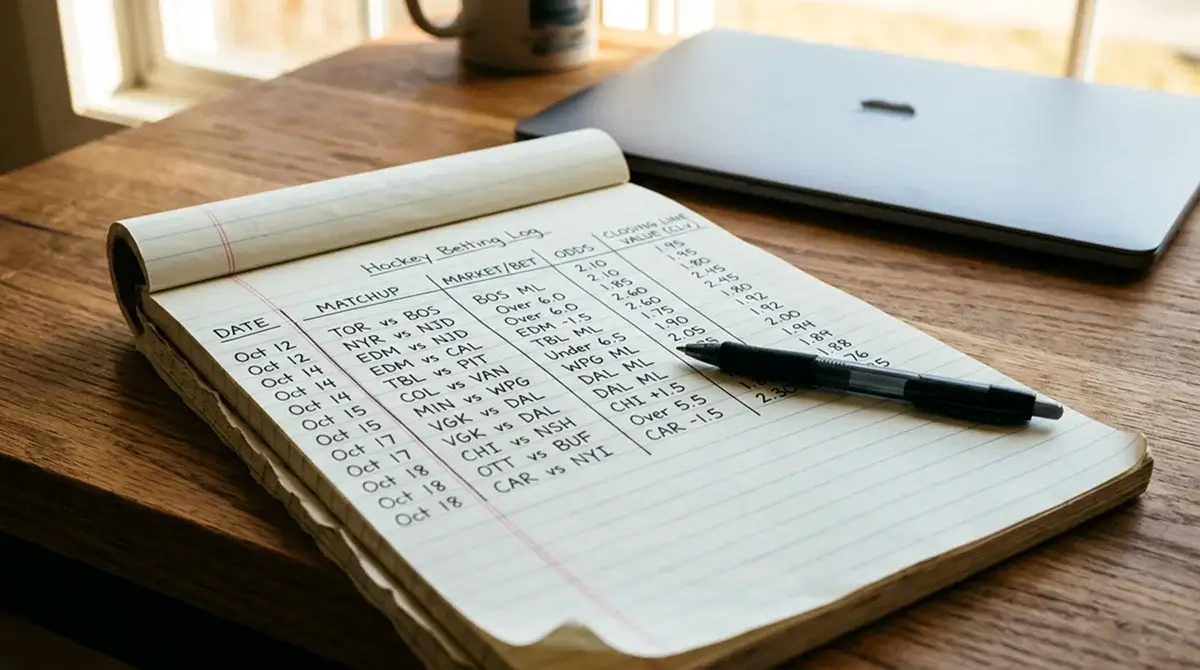 Hockey Betting Log
DATE
Oct 12
Oct 12
Oct 14
Oct 14
Oct 15
Oct 17
Oct 17
Oct 18
Oct 18
Oct 18
MATCHUP
TOR vs BOS
NYR vs NJD
EDM vs NJD
EDM vs CAL
TBL vs PIT
COL vs VAN
MIN vs WPG
VGK vs DAL
VGK vs DAL
CHI vs NSH
OTT vs BUF
CAR vs NYI
MARKET/BET
BOS ML
Over 6.0
Over 6.0
EDM -1.5
TBL ML
Under 6.5
WPG ML
DAL ML
DAL ML
CHI +1.5
Over 5.5
CAR -1.5
ODDS
2.10
2.10
1.85
2.60
2.60
1.75
1.90
2.05
CLOSING LINE
VALUE (CLV)
1.95
1.80
2.45
2.45
1.80
1.92
1.92
2.00
1.94
1.89